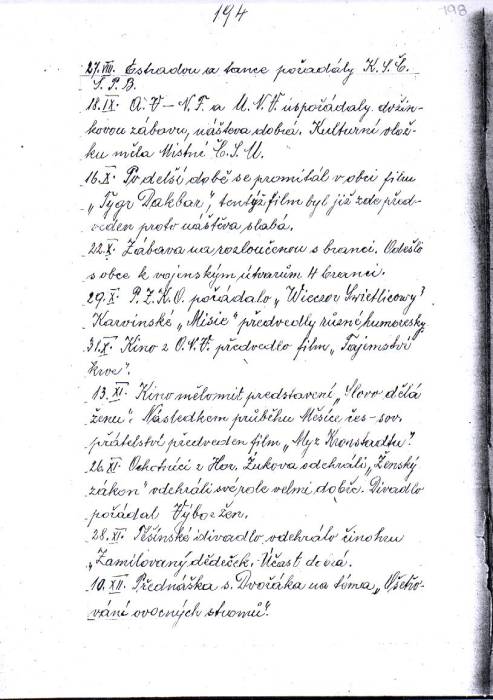 194
198
27.VIII. Estradou a tance pořádaly K.S.Č.
S.P.B.
18.IX. A.V-N.F. a M.N.V. uspořádaly dožín-
kovou zábavu, náštěva dobrá. Kulturní vlož-
ku měla Místní Č.S.M.
16.X. Po delší době se promítal v obci film
"Tygr Dakbar", tentýž film byl již zde před-
veden proto náštěva slabá.
22.X. Zábava na rozloučenou s branci. Odešlo
s obce k vojinským útvarům 4 branci.
29.X. P.Z.K.O. pořádalo "Wieczor Swietlicowy"
Karvinské "Misie" předvedly různé humoresky.
31.X. Kino z O.N.V. předvedlo film "Tajemství
krve".
13.XI. Kino mělo mít představení "Slovo dělá
ženu". Následkem průběhu Měsíce čes-sov.
přátelství předveden film "My z Kronstadtu".
26.XI. Ochotníci z Hor. Žukova odehráli "Ženský
zákon" odehráli své role velmi dobře. Divadlo
pořádal Výbor žen.
28.XI. Těšínské divadlo odehrálo činohru
"Zamilovaný dědeček". Účast dobrá.
10.XII. Přednáška s. Dvořáka na téma "Ošetřo-
vání ovocných stromů".